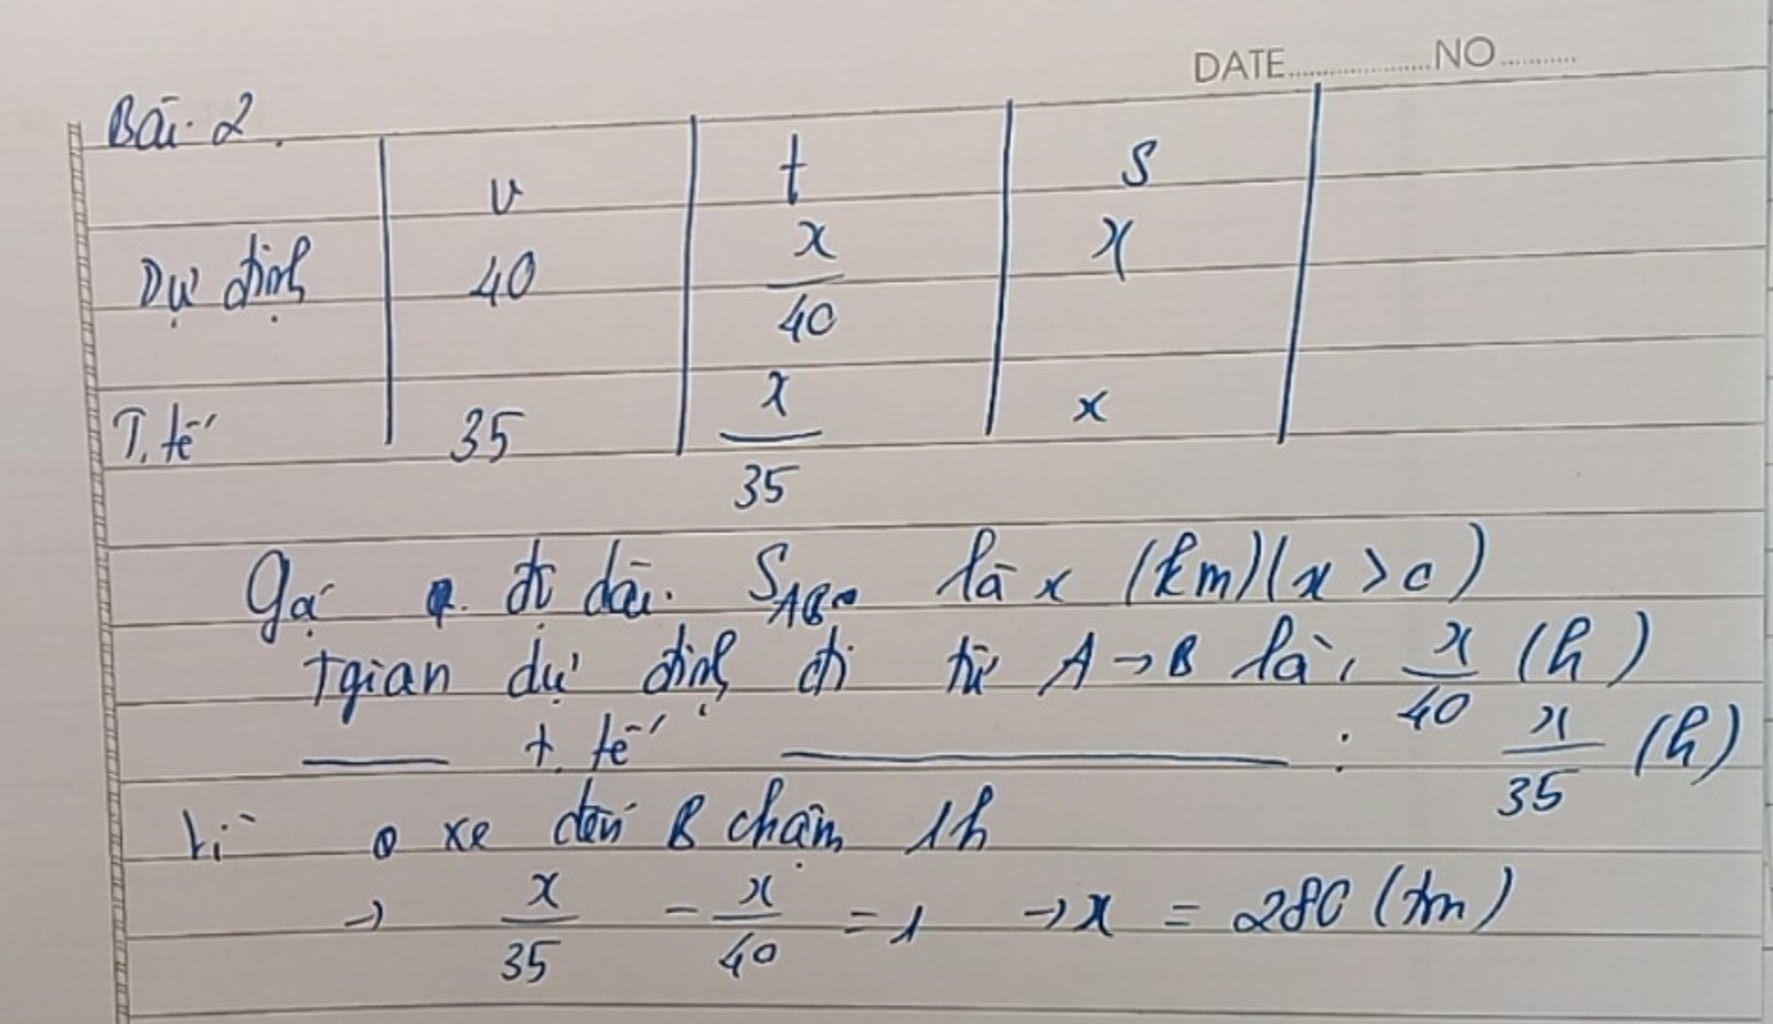 DATE ........... NO ........
Bài 2.
v t S
Dự định 40 x/40 x
T. tế 35 x/35 x
Gọi độ dài S_AB là x (km) (x > 0)
tgian dự định đi từ A → B là: x/40 (h)
—— t. tế ———————— : x/35 (h)
Vì xe đến B chậm 1h
→ x/35 - x/40 = 1 → x = 280 (km)